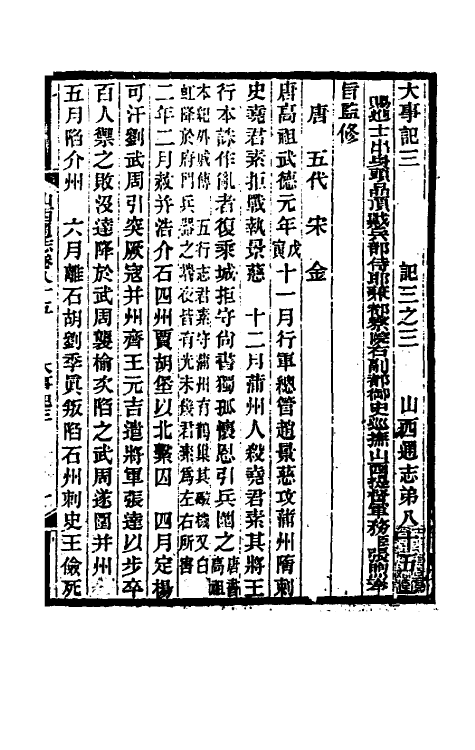 大事記三　記三之三　山西通志第八十五
賜進士出身頭品頂戴兵部侍郎兼都察院右副都御史巡撫山西提督軍務臣張煦奉
旨監修
唐　五代　宋　金
唐高祖武德元年戊寅十一月行軍總管趙景慈攻蒲州隋刺
史堯君素拒戰執景慈　十二月蒲州人殺堯君素其將王
行本誅作亂者復乘城拒守尚書獨孤懷恩引兵圍之唐書高祖
本紀外戚傳　五行志君素守蒲州有鵲巢其礮機又白
虹降於府門兵器之端夜皆有光未幾君素為左右所害
二年二月赦并浩介石四州賈胡堡以北繫囚　四月定楊
可汗劉武周引突厥寇并州齊王元吉遣將軍張達以步卒
百人禦之敗沒達降於武周襲榆次陷之武周遂圍并州
五月陷介州　六月離石胡劉季真叛陷石州刺史王儉死
山西通志卷八十五　大事記三　一